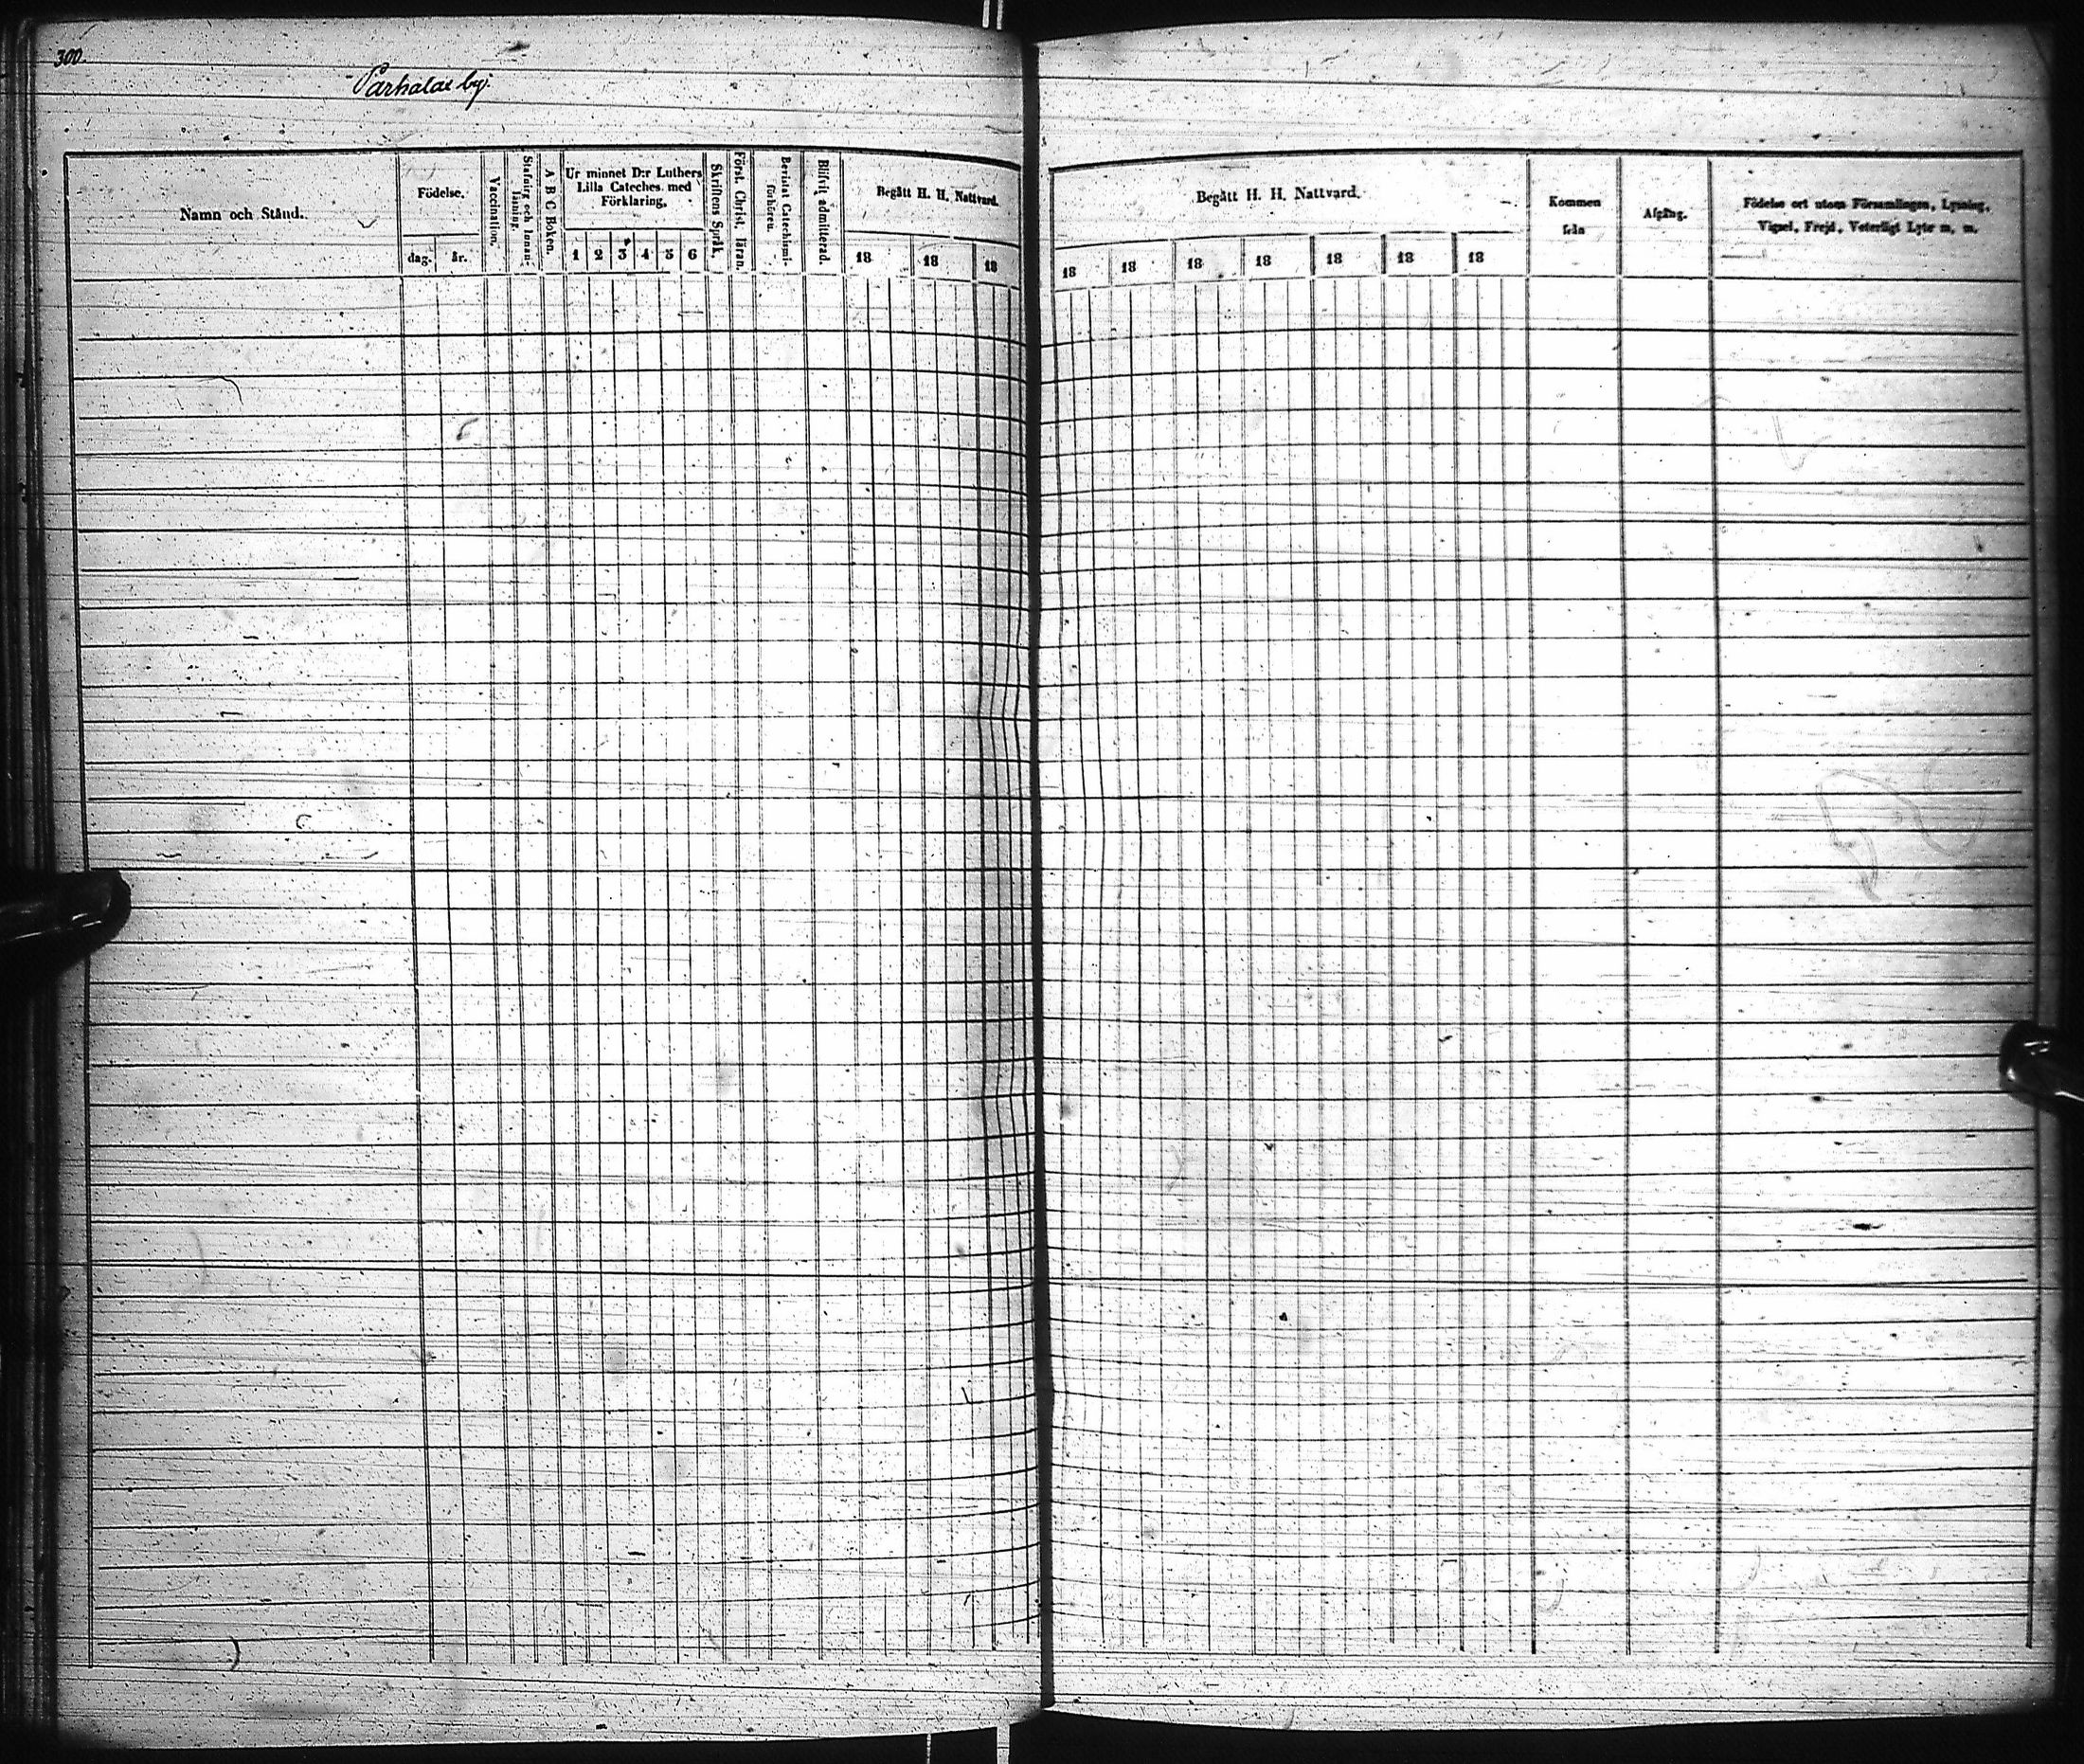 300.
Parhalae by.
Namn och Stånd.
Födelse.
dag. år.
Vaccination.
Stafning och Innan-
läsning.
A B C Boken.
Ur minnet D:r Luthers
Lilla Cateches med
Förklaring.
1 2 3 4 5 6
Skriftens Språk.
Först. Christ. läran.
Bevistat Catechismi-
förhören.
Blifvit admitterad.
Begått H. H. Nattvard.
18 18 18
Begått H. H. Nattvard.
18 18 18 18 18 18 18
Kommen
från
Afgång.
Födelse ort utom Församlingen, Lysning,
Vigsel, Frejd, Veterligt Lyte m. m.